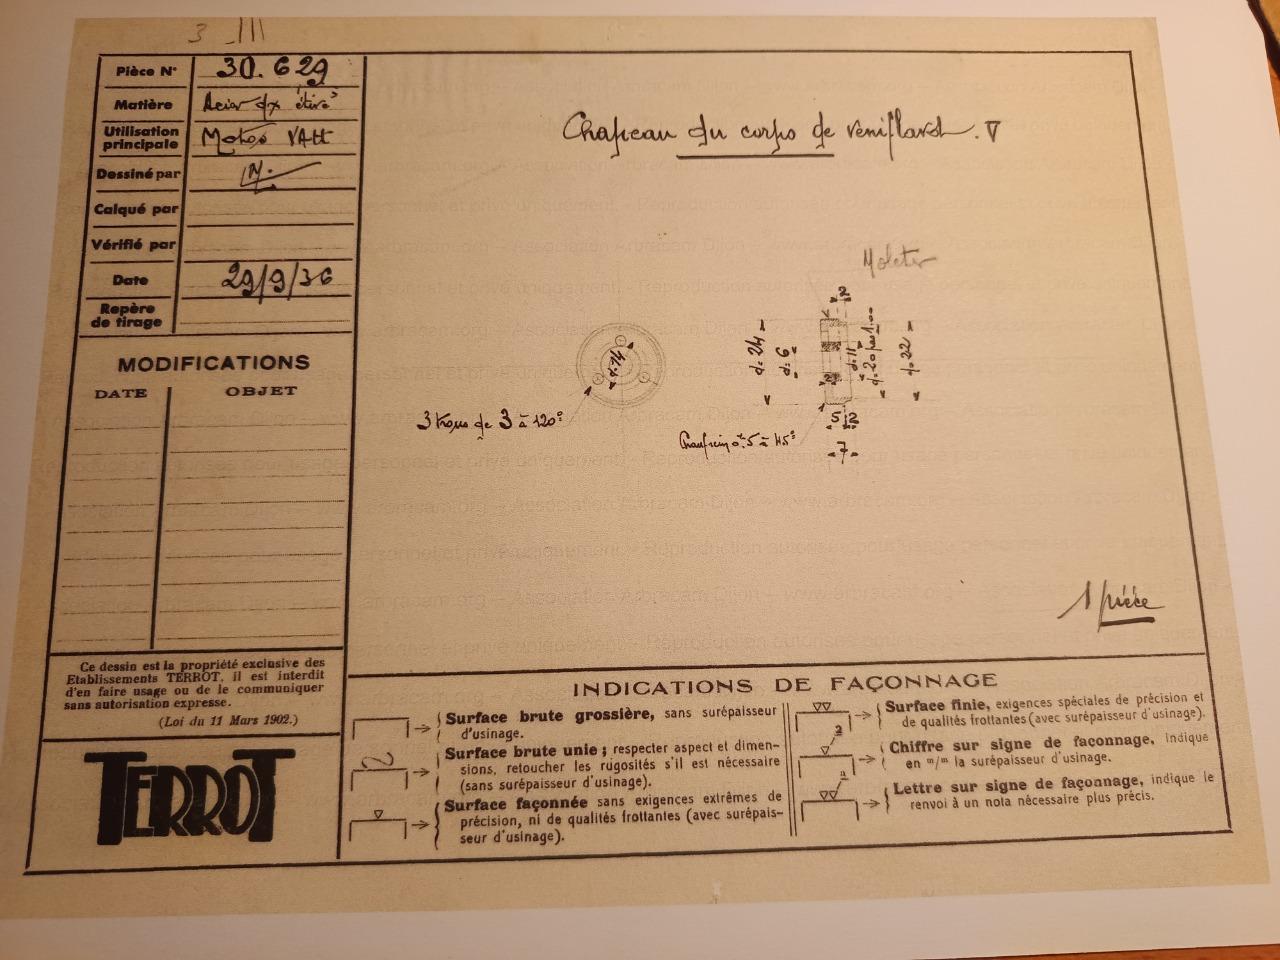 3
Pièce N° 30.629
Matière Acier dx étiré
Utilisation principale Motos VAtt
Dessiné par
Calqué par
Vérifié par
Date 29/9/36
Repère de tirage
MODIFICATIONS
DATE OBJET
Ce dessin est la propriété exclusive des
Etablissements TERROT, il est interdit
d'en faire usage ou de le communiquer
sans autorisation expresse.
(Loi du 11 Mars 1902.)
TERROT
Chapeau du corps de reniflard. ∇
Moleter
2
d:24
d:6
d:11
d:20 pas 1.00
d:22
14
3 trous de 3 à 120°
2
Chanfrein 0.5 à 45°
5 2
7
1 pièce
INDICATIONS DE FAÇONNAGE
Surface brute grossière, sans surépaisseur
d'usinage.
Surface brute unie ; respecter aspect et dimen-
sions, retoucher les rugosités s'il est nécessaire
(sans surépaisseur d'usinage).
Surface façonnée sans exigences extrêmes de
précision, ni de qualités frottantes (avec surépais-
seur d'usinage).
Surface finie, exigences spéciales de précision et
de qualités frottantes (avec surépaisseur d'usinage).
2
Chiffre sur signe de façonnage, indique
en m/m la surépaisseur d'usinage.
a
Lettre sur signe de façonnage, indique le
renvoi à un nota nécessaire plus précis.